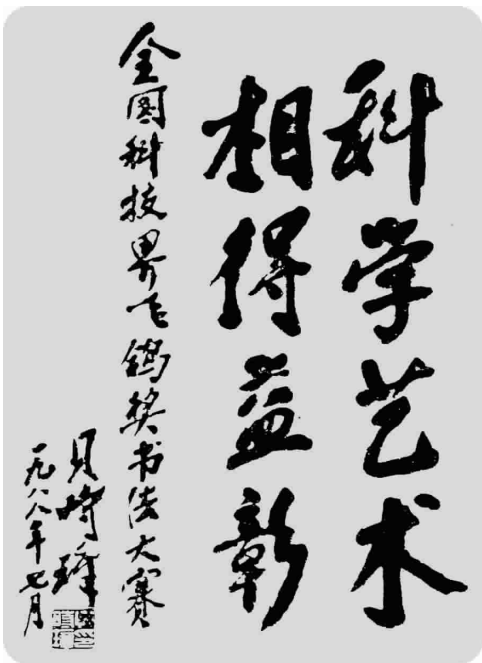 科学艺术
相得益彰
全国科技界飞鸽奖书法大赛
贝时璋
一九八八年七月